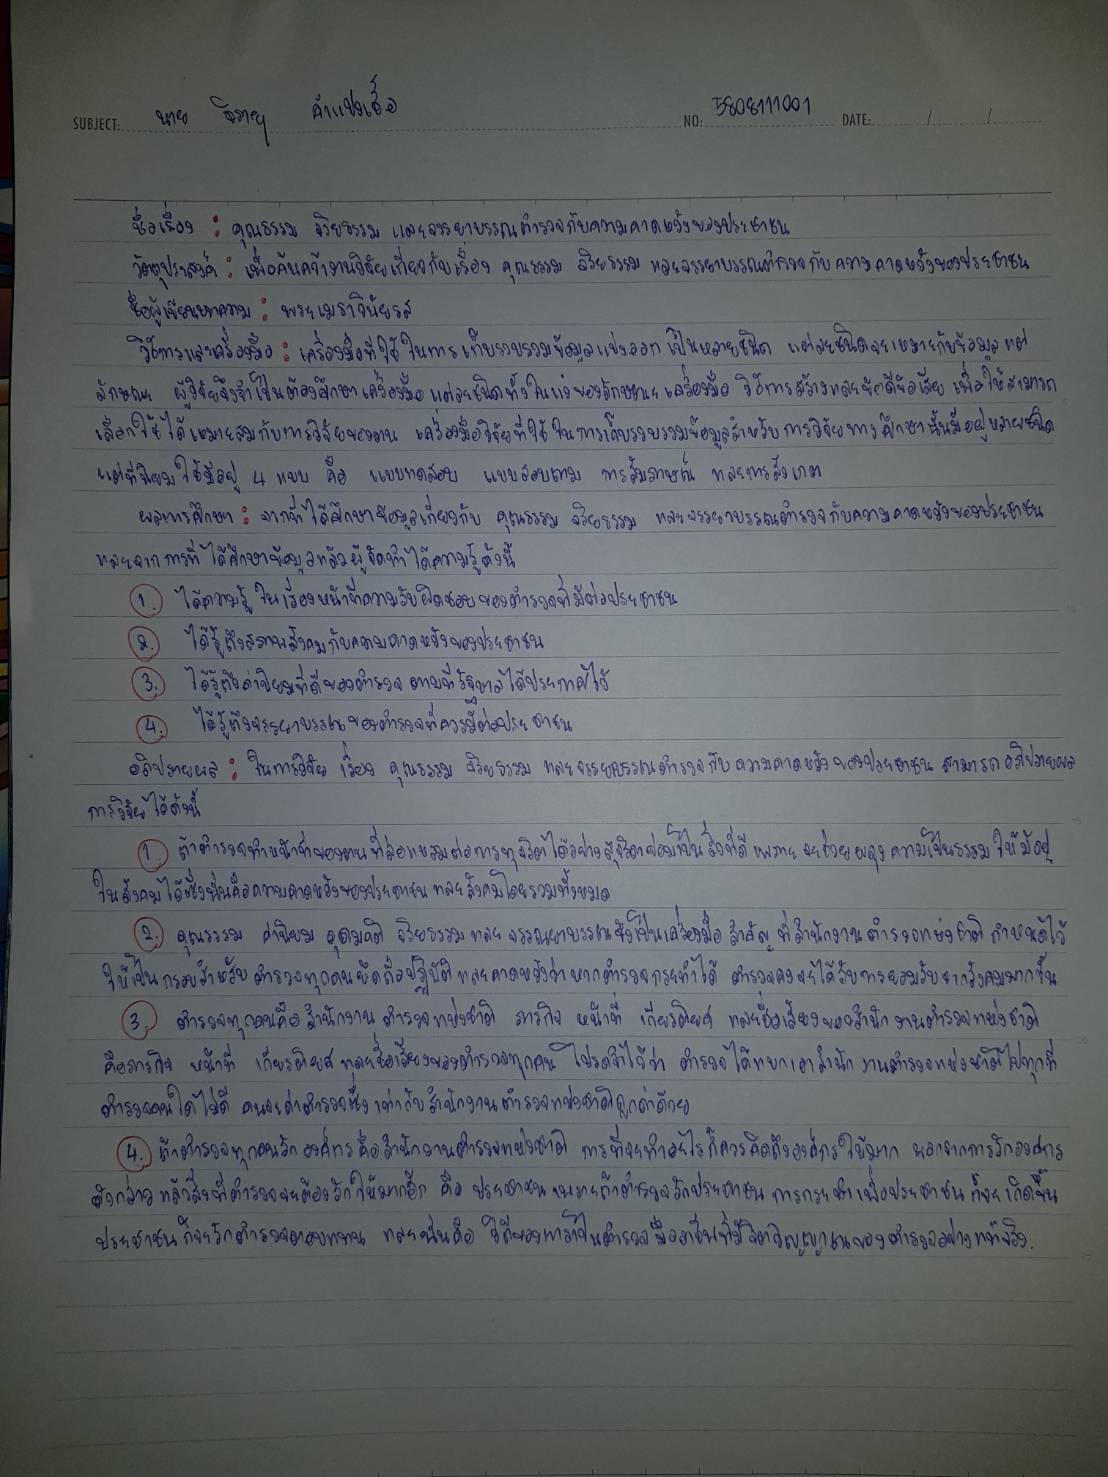 SUBJECT: นาย จิรายุ คำแปงเชื้อ NO: 5808111001 DATE: / /
ชื่อเรื่อง : คุณธรรม จริยธรรม และจรรยาบรรณตำรวจกับความคาดหวังของประชาชน
วัตถุประสงค์ : เพื่อค้นคว้างานวิจัยเกี่ยวกับเรื่อง คุณธรรม จริยธรรม และจรรยาบรรณตำรวจกับความคาดหวังของประชาชน
ชื่อผู้เขียนบทความ : พระเมธาวินัยรส
วิธีการและเครื่องมือ : เครื่องมือที่ใช้ในการเก็บรวบรวมข้อมูลแบ่งออกเป็นหลายชนิด แต่ละชนิดจะเหมาะกับข้อมูลแต่
ลักษณะ ผู้วิจัยจึงจำเป็นต้องศึกษาเครื่องมือแต่ละชนิดทั้งในแง่ของลักษณะเครื่องมือ วิธีการสร้างและข้อดีข้อเสีย เพื่อให้สามารถ
เลือกใช้ได้เหมาะสมกับการวิจัยของตน เครื่องมือวิจัยที่ใช้ในการเก็บรวบรวมข้อมูลสำหรับการวิจัยทางศึกษานั้นมีอยู่หลายชนิด
แต่ที่นิยมใช้มีอยู่ 4 แบบ คือ แบบทดสอบ แบบสอบถาม การสัมภาษณ์ และการสังเกต
ผลการศึกษา : จากที่ได้ศึกษาข้อมูลเกี่ยวกับ คุณธรรม จริยธรรม และจรรยาบรรณตำรวจกับความคาดหวังของประชาชน
และจากการที่ได้ศึกษาข้อมูลแล้วผู้จัดทำได้ความรู้ดังนี้
1. ได้ความรู้ในเรื่องหน้าที่ความรับผิดชอบของตำรวจที่มีต่อประชาชน
2. ได้รู้ถึงสถานสังคมกับความคาดหวังของประชาชน
3. ได้รู้ถึงค่านิยมที่ดีของตำรวจ ตามที่รัฐบาลได้ประกาศไว้
4. ได้รู้ถึงจรรยาบรรณของตำรวจที่ควรมีต่อประชาชน
อภิปรายผล : ในการวิจัย เรื่อง คุณธรรม จริยธรรม และจรรยาบรรณตำรวจกับความคาดหวังของประชาชน สามารถอภิปรายผล
การวิจัยได้ดังนี้
1. ถ้าตำรวจทำหน้าที่ของตนที่ล่อแหลมต่อการทุจริตได้อย่างสุจริตย่อมเป็นสิ่งที่ดี เพราะจะช่วยผดุงความเป็นธรรมให้มีอยู่
ในสังคมได้ซึ่งนั่นคือความคาดหวังของประชาชน และสังคมโดยรวมทั้งหมด
2. คุณธรรม ค่านิยม อุดมคติ จริยธรรมและ จรรณยาบรรณจึงเป็นเครื่องมือ สำคัญ ที่สำนักงานตำรวจแห่งชาติ กำหนดไว้
ให้เป็นกรอบสำหรับ ตำรวจทุกคนยึดถือปฏิบัติ และคาดหวังว่าหากตำรวจกระทำได้ ตำรวจคงจะได้รับการยอมรับจากสังคมมากขึ้น
3. ตำรวจทุกคนคือสำนักงาน ตำรวจแห่งชาติ ภารกิจ หน้าที่ เกียรติยศ และชื่อเสียงของสำนักงานตำรวจแห่งชาติ
คือภารกิจ หน้าที่ เกียรติยศ และชื่อเสียงของตำรวจทุกคน โปรดจำไว้ว่า ตำรวจได้แบกเอาสำนักงานตำรวจแห่งชาติไปทุกที่
ตำรวจคนใดไม่ดี คนจะด่าตำรวจซึ่งเท่ากับสำนักงานตำรวจแห่งชาติถูกด่าด้วย
4. ถ้าตำรวจทุกคนรักองค์กรคือสำนักงานตำรวจแห่งชาติ การที่จะทำอะไรก็ควรคิดถึงองค์กรให้มาก นอกจากการรักองค์กร
ดังกล่าว แล้วสิ่งที่ตำรวจจะต้องรักให้มากอีก คือ ประชาชน เพราะถ้าตำรวจรักประชาชน การกระทำเพื่อประชาชน ก็จะเกิดขึ้น
ประชาชนก็จะรักตำรวจตอบแทน และนั่นคือ วิถีของการเป็นตำรวจมืออาชีพที่มีจิตวิญญาณของตำรวจอย่างแท้จริง.